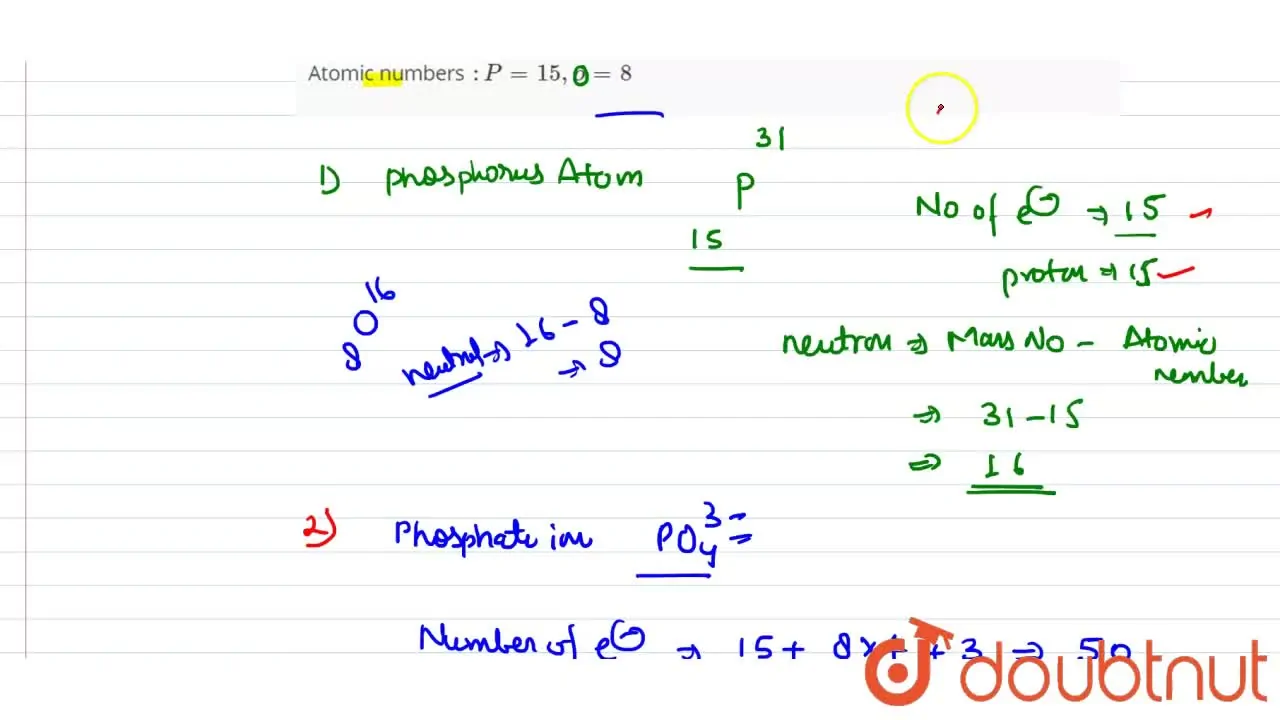 Atomic numbers : P = 15, O = 8
1) phosphorus Atom
31
P
15
No of e⊖ ⇒ 15
proton ⇒ 15
16
O
8
neutral ⇒ 16 - 8
⇒ 8
neutron ⇒ Mass No - Atomic
number
⇒ 31 - 15
⇒ 16
2) Phosphate ion PO₄³⁻
Number of e⊖ → 15 + 8×4 + 3 ⇒ 50
doubtnut